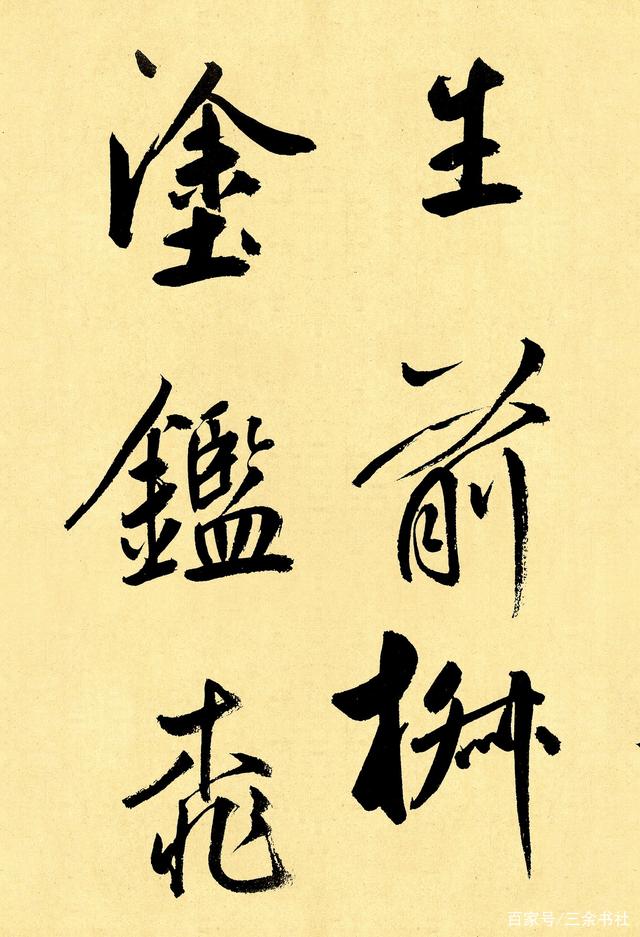 生前
塗鑑乖
百家号/三余书社